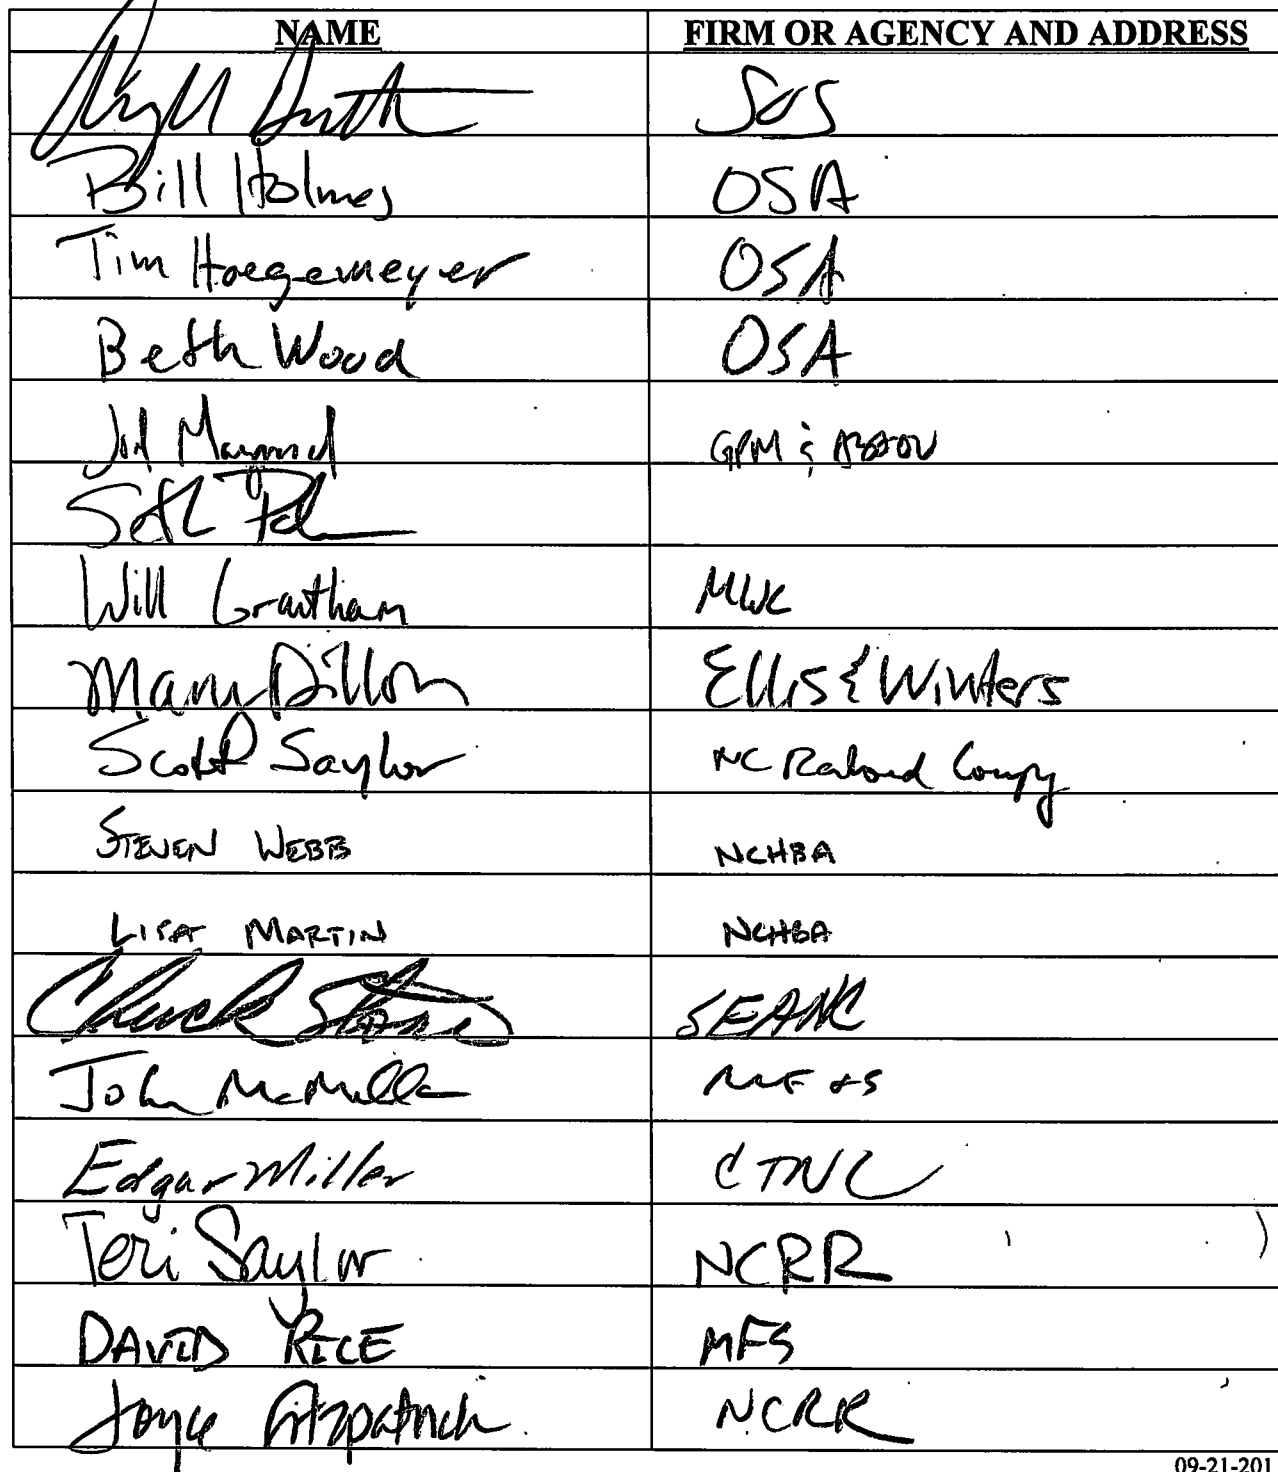 NAME FIRM OR AGENCY AND ADDRESS
SOS
Bill Holmes OSA
Tim Hoegemeyer OSA
Beth Wood OSA
GPM &
Seth
Will Grantham MWC
Dillon Ellis & Winters
Scott Saylor NC Railroad Company
STEVEN WEBB NCHBA
LISA MARTIN NCHBA
Chuck Stone SEANC
John McMillan MF&S
Edgar Miller CTNC
Teri Saylor NCRR
DAVID RICE MFS
Joyce Fitzpatrick NCRR
09-21-201